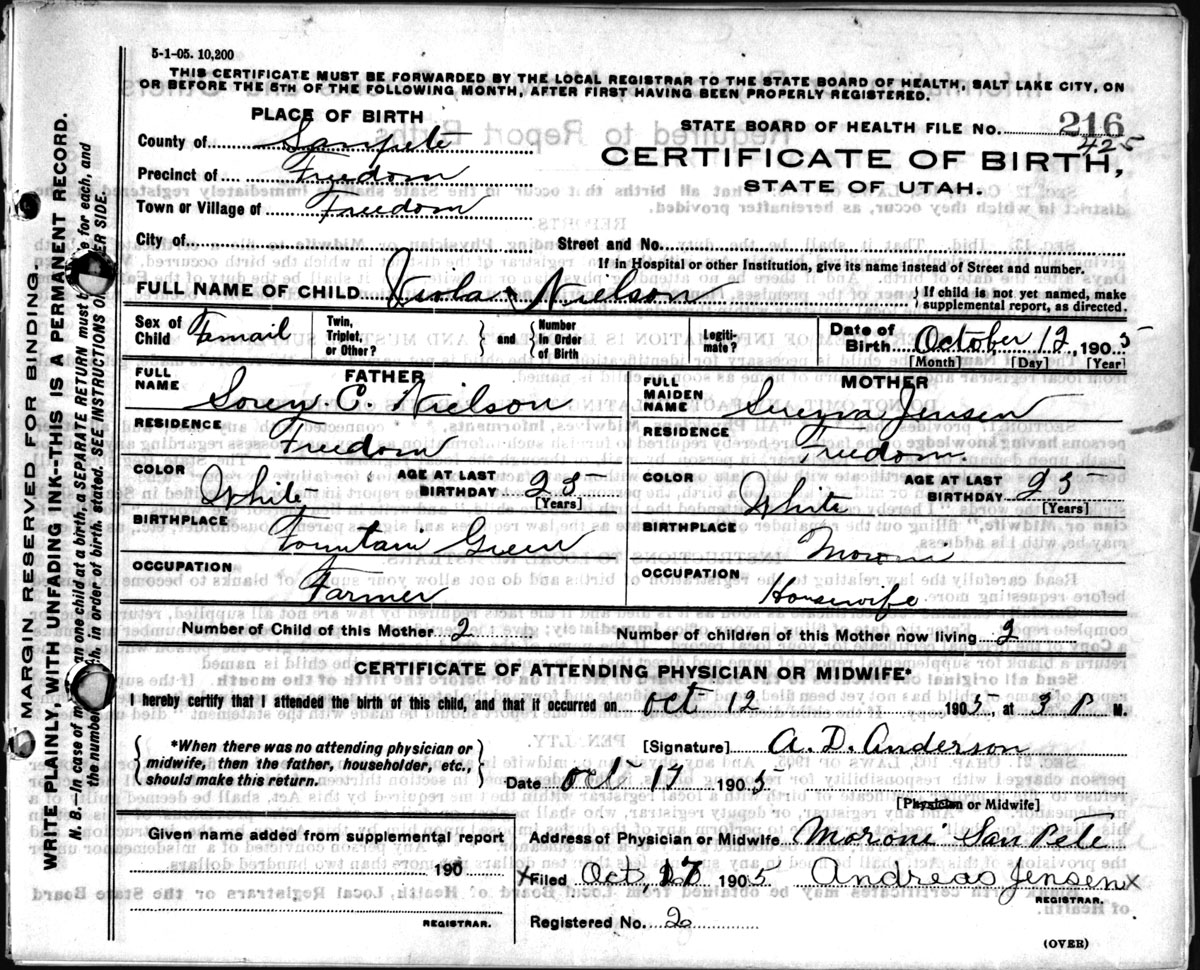 5-1-05. 10,200
THIS CERTIFICATE MUST BE FORWARDED BY THE LOCAL REGISTRAR TO THE STATE BOARD OF HEALTH, SALT LAKE CITY, ON
OR BEFORE THE 5TH OF THE FOLLOWING MONTH, AFTER FIRST HAVING BEEN PROPERLY REGISTERED.
MARGIN RESERVED FOR BINDING.
WRITE PLAINLY, WITH UNFADING INK--THIS IS A PERMANENT RECORD.
N. B.--In case of m an one child at a birth, a SEPARATE RETURN must b e for each, and
the number h, in order of birth, stated. SEE INSTRUCTIONS O ER SIDE.
PLACE OF BIRTH
County of Sanpete
Precinct of Freedom
Town or Village of Freedom
City of
STATE BOARD OF HEALTH FILE NO. 216
425
CERTIFICATE OF BIRTH,
STATE OF UTAH.
Street and No.
If in Hospital or other Institution, give its name instead of Street and number.
FULL NAME OF CHILD Viola Nielson
If child is not yet named, make supplemental report, as directed.
Sex of Child Femail
Twin, Triplet, or Other?
and Number In Order of Birth
Legiti-mate?
Date of Birth October 12, 1905
[Month] [Day] [Year]
FATHER
FULL NAME Soren C. Nielson
RESIDENCE Freedom
COLOR White AGE AT LAST BIRTHDAY 25
[Years]
BIRTHPLACE Fountain Green
OCCUPATION Farmer
MOTHER
FULL MAIDEN NAME Jensen
RESIDENCE Freedom
COLOR White AGE AT LAST BIRTHDAY 25
[Years]
BIRTHPLACE Moroni
OCCUPATION Housewife
Number of Child of this Mother 2 Number of children of this Mother now living 2
CERTIFICATE OF ATTENDING PHYSICIAN OR MIDWIFE*
I hereby certify that I attended the birth of this child, and that it occurred on oct 12 1905, at 3 P M.
*When there was no attending physician or
midwife, then the father, householder, etc.,
should make this return.
[Signature] A. D. Anderson
Date oct 17 1905
[Physician or Midwife]
Given name added from supplemental report
190
REGISTRAR.
Address of Physician or Midwife Moroni San Pete
X Filed Oct, 17 1905 Andreas Jensen X
REGISTRAR.
Registered No. 2
(OVER)